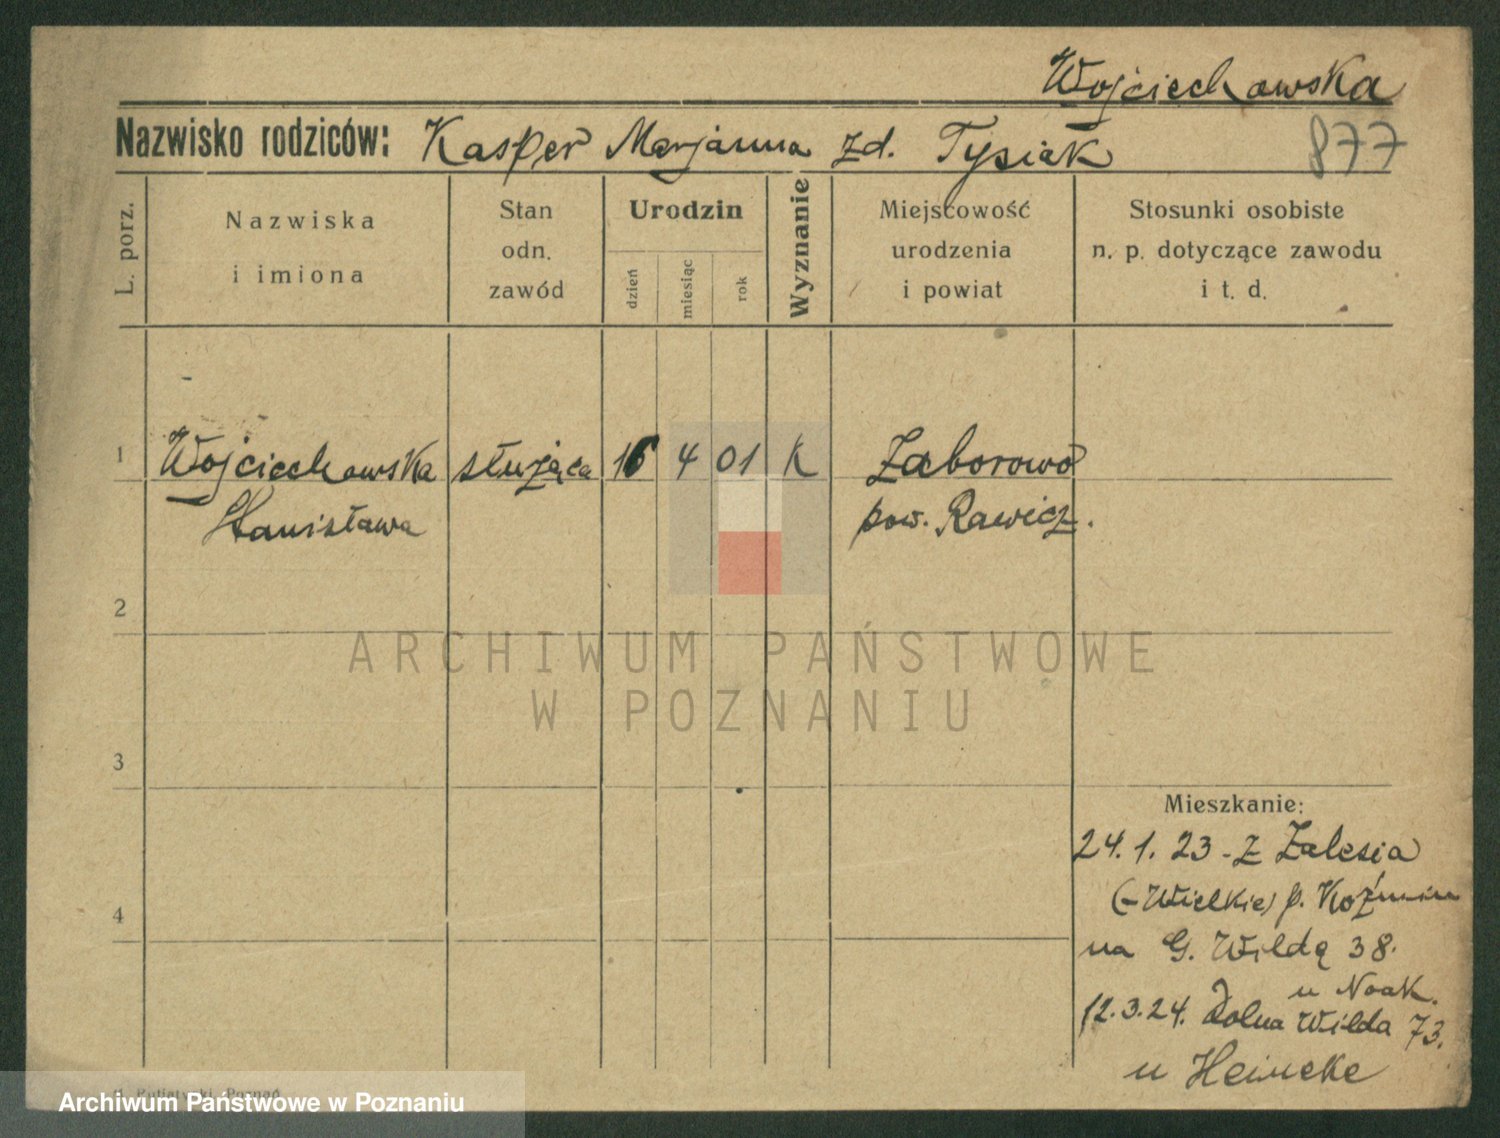 Wojciechowska
Nazwisko rodziców: Kasper Marjanna zd. Tysiak
877
L. porz.
Nazwiska
i imiona
Stan
odn.
zawód
Urodzin
dzień
miesiąc
rok
Wyznanie
Miejscowość
urodzenia
i powiat
Stosunki osobiste
n. p. dotyczące zawodu
i t. d.
1 Wojciechowska służąca 16 4 01 K Zaborowo
Stanisława pow. Rawicz.
2
ARCHIWUM PAŃSTWOWE
W POZNANIU
3
Mieszkanie:
24. 1. 23 - z Zalesia
(-Wielkie) p. Koźmin
4
na G. Wildą 38.
u Noak.
12.3.24. Dolna Wilda 73.
u Heincke
Poznań
Archiwum Państwowe w Poznaniu